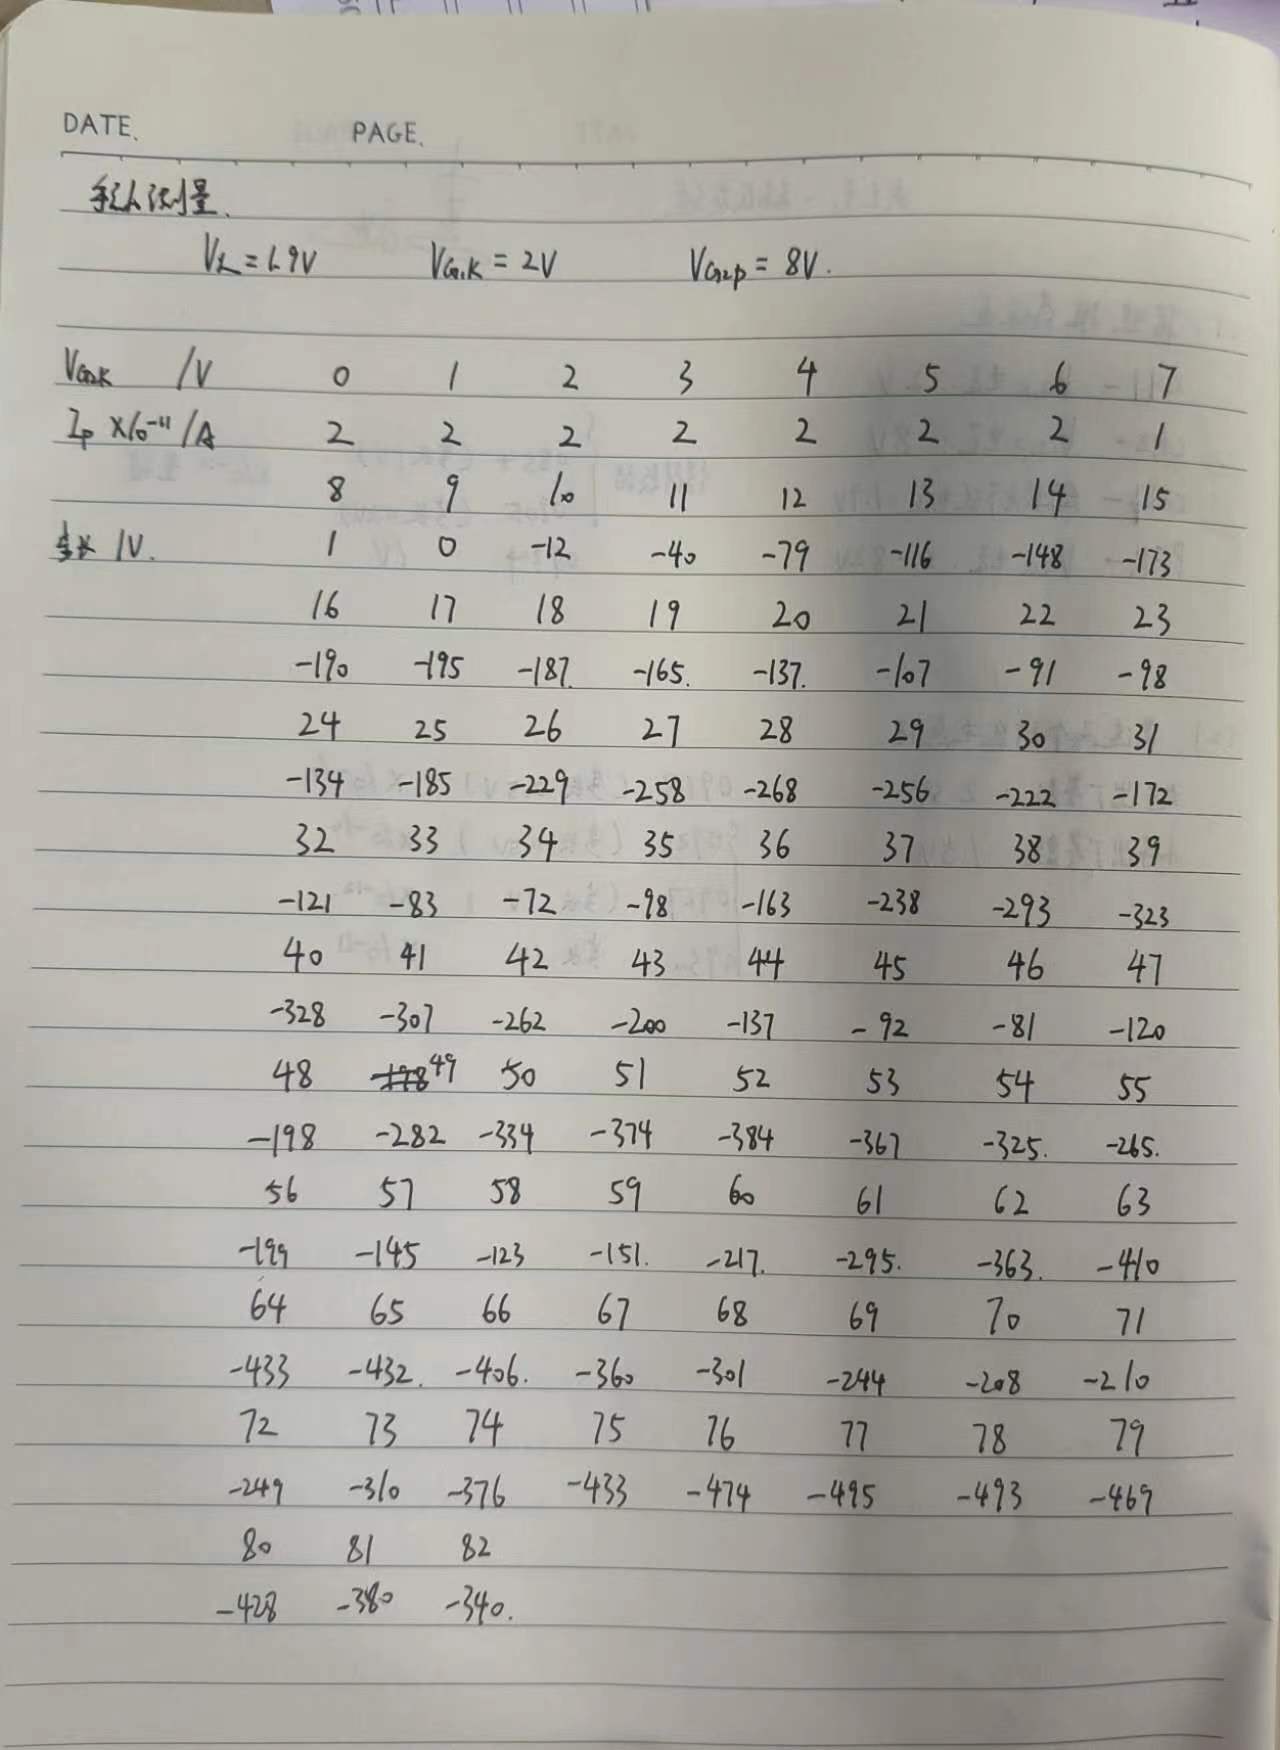 DATE. PAGE.
手动测量.
V灯=1.9V VG1K = 2V VG2P = 8V.
VG2K /V 0 1 2 3 4 5 6 7
Ip ×10⁻¹¹/A 2 2 2 2 2 2 2 1
8 9 10 11 12 13 14 15
/V. 1 0 -12 -40 -79 -116 -148 -173
16 17 18 19 20 21 22 23
-190 -195 -187. -165. -137. -107 -91 -98
24 25 26 27 28 29 30 31
-134 -185 -229 -258 -268 -256 -222 -172
32 33 34 35 36 37 38 39
-121 -83 -72 -98 -163 -238 -293 -323
40 41 42 43 44 45 46 47
-328 -307 -262 -200 -137 -92 -81 -120
48 49 50 51 52 53 54 55
-198 -282 -334 -374 -384 -367 -325. -265.
56 57 58 59 60 61 62 63
-199 -145 -123 -151. -217. -295. -363. -410
64 65 66 67 68 69 70 71
-433 -432. -406. -360 -301 -244 -208 -210
72 73 74 75 76 77 78 79
-249 -310 -376 -433 -474 -495 -493 -469
80 81 82
-428 -380 -340.